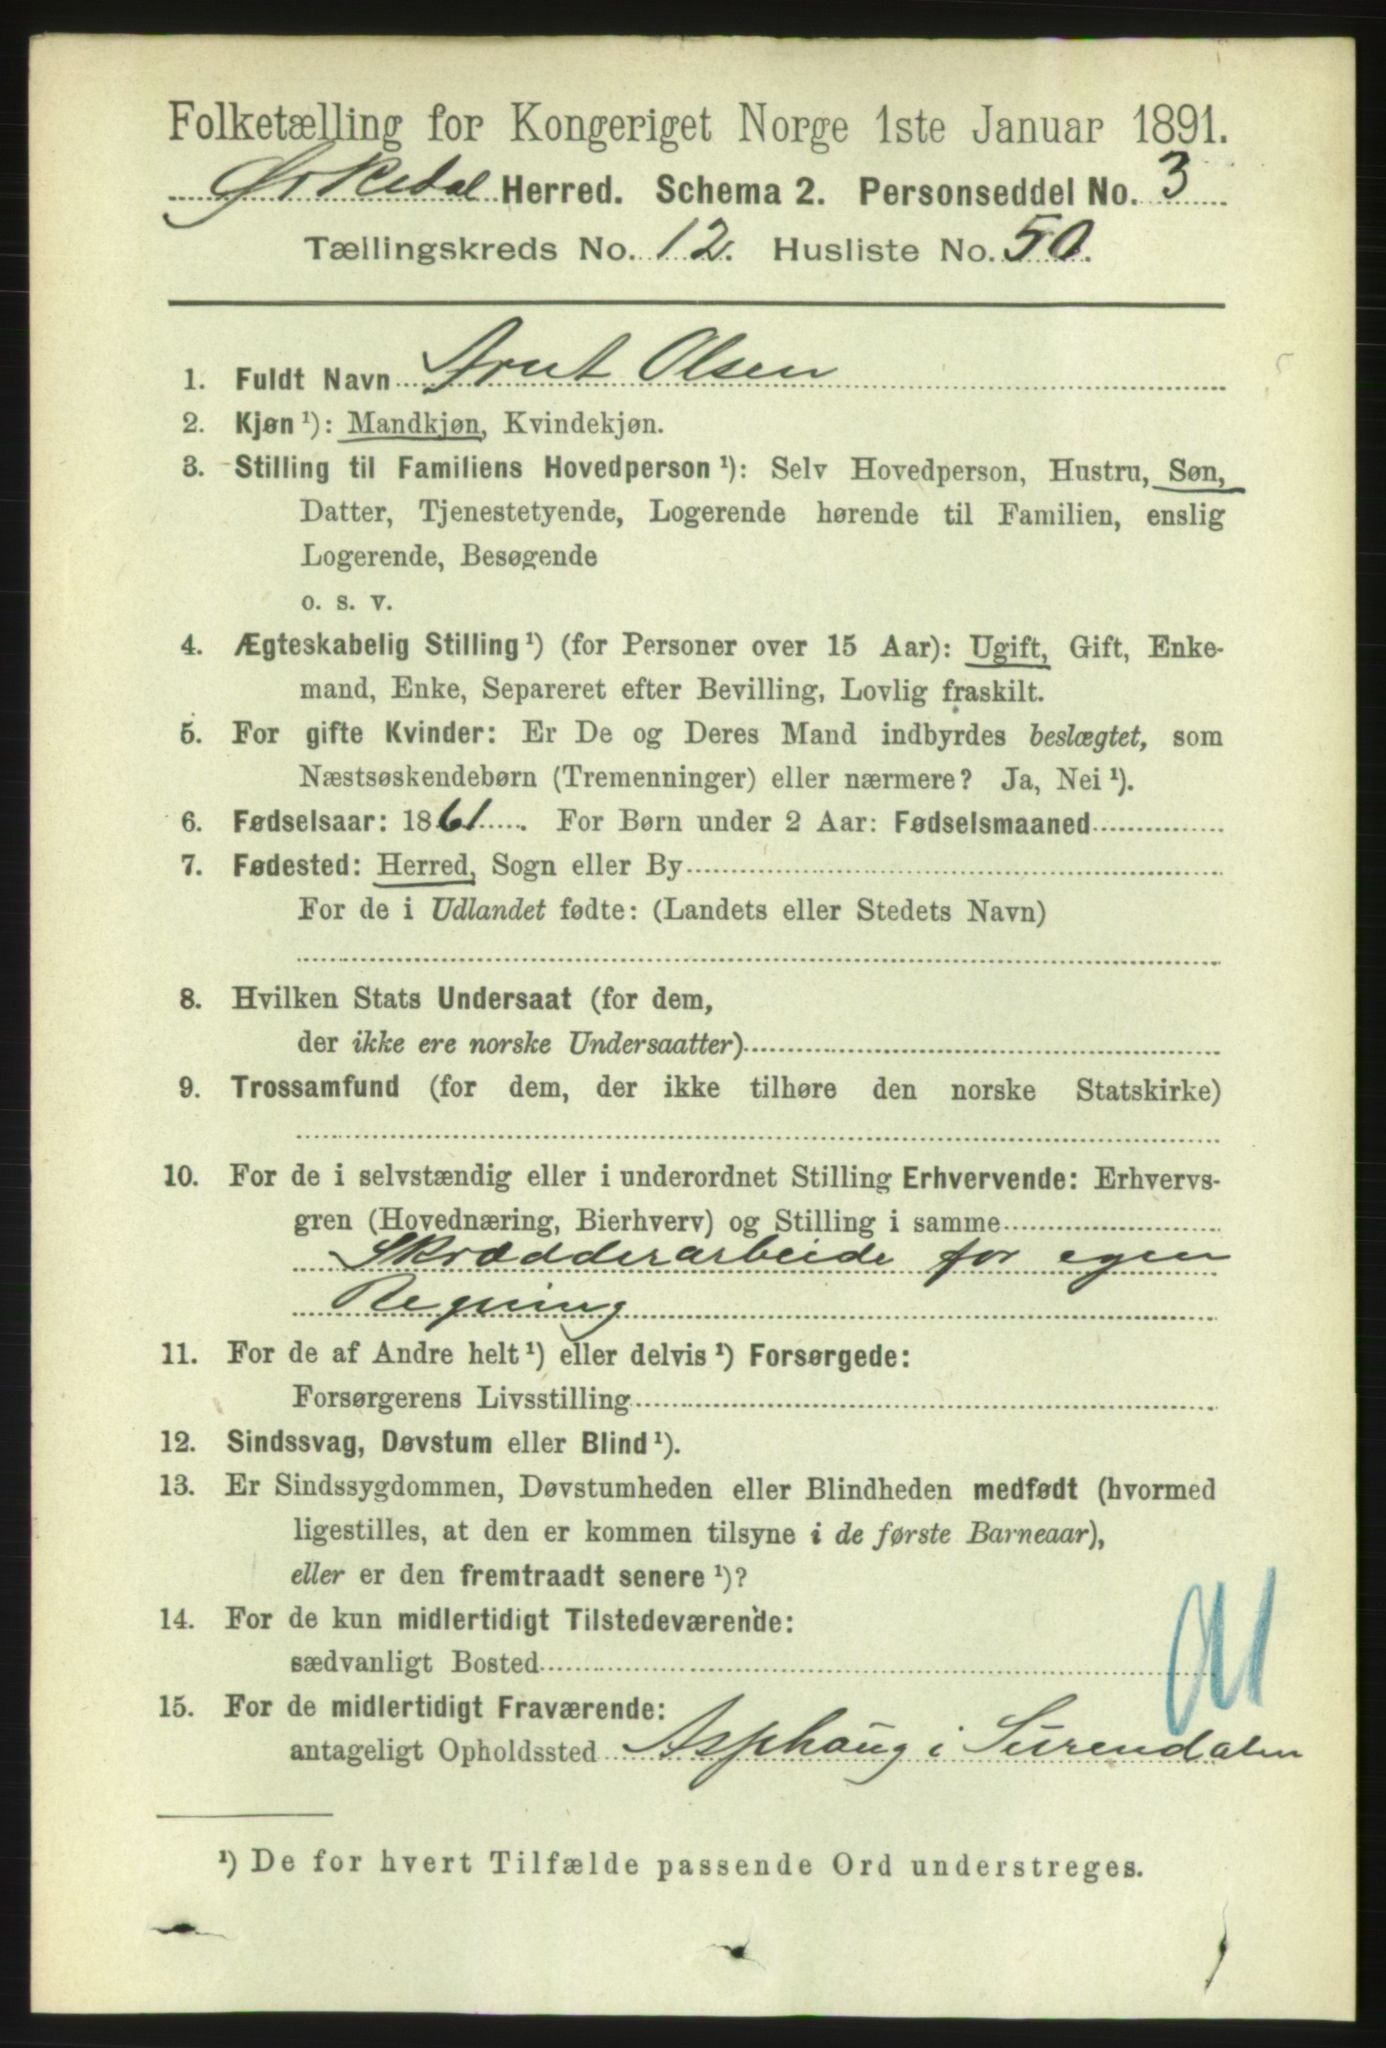 Folketælling for Kongeriget Norge 1ste Januar 1891.
Ørkedal Herred. Schema 2. Personseddel No. 3
Tællingskreds No. 12. Husliste No. 50.
1. Fuldt Navn Arnt Olsen
2. Kjøn ¹): Mandkjøn, Kvindekjøn.
3. Stilling til Familiens Hovedperson ¹): Selv Hovedperson, Hustru, Søn,
Datter, Tjenestetyende, Logerende hørende til Familien, enslig
Logerende, Besøgende
o. s. v.
4. Ægteskabelig Stilling ¹) (for Personer over 15 Aar): Ugift, Gift, Enke-
mand, Enke, Separeret efter Bevilling, Lovlig fraskilt.
5. For gifte Kvinder: Er De og Deres Mand indbyrdes beslægtet, som
Næstsøskendebørn (Tremenninger) eller nærmere? Ja, Nei ¹).
6. Fødselsaar: 1861. For Børn under 2 Aar: Fødselsmaaned
7. Fødested: Herred, Sogn eller By
For de i Udlandet fødte: (Landets eller Stedets Navn)
8. Hvilken Stats Undersaat (for dem,
der ikke ere norske Undersaatter)
9. Trossamfund (for dem, der ikke tilhøre den norske Statskirke)
10. For de i selvstændig eller i underordnet Stilling Erhvervende: Erhvervs-
gren (Hovednæring, Bierhverv) og Stilling i samme
Skrædderarbeide for egen
Regning
11. For de af Andre helt ¹) eller delvis ¹) Forsørgede:
Forsørgerens Livsstilling
12. Sindssvag, Døvstum eller Blind ¹).
13. Er Sindssygdommen, Døvstumheden eller Blindheden medfødt (hvormed
ligestilles, at den er kommen tilsyne i de første Barneaar),
eller er den fremtraadt senere ¹)?
14. For de kun midlertidigt Tilstedeværende:
sædvanligt Bosted
15. For de midlertidigt Fraværende:
antageligt Opholdssted Asphaug i Surendalen
¹) De for hvert Tilfælde passende Ord understreges.